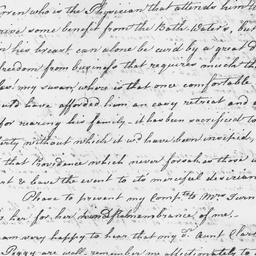 who is the Physician that attends him
some benefit from the Bath Waters, but
in his breast can alone be cur'd by a great
freedom from business that requires much
my swan, where is that once comfortable
have afforded him an easy retreat and
for rearing his family - it has been sacrificed to
without which it wd. have been insipid,
that Providence which never forsakes those
& leave the event to its merciful decision
I have to present my Compts. to Mrs.
her for her kind Remembrance of me.
am very happy to hear that my Dr. Aunt
are well. remember me affectionately to